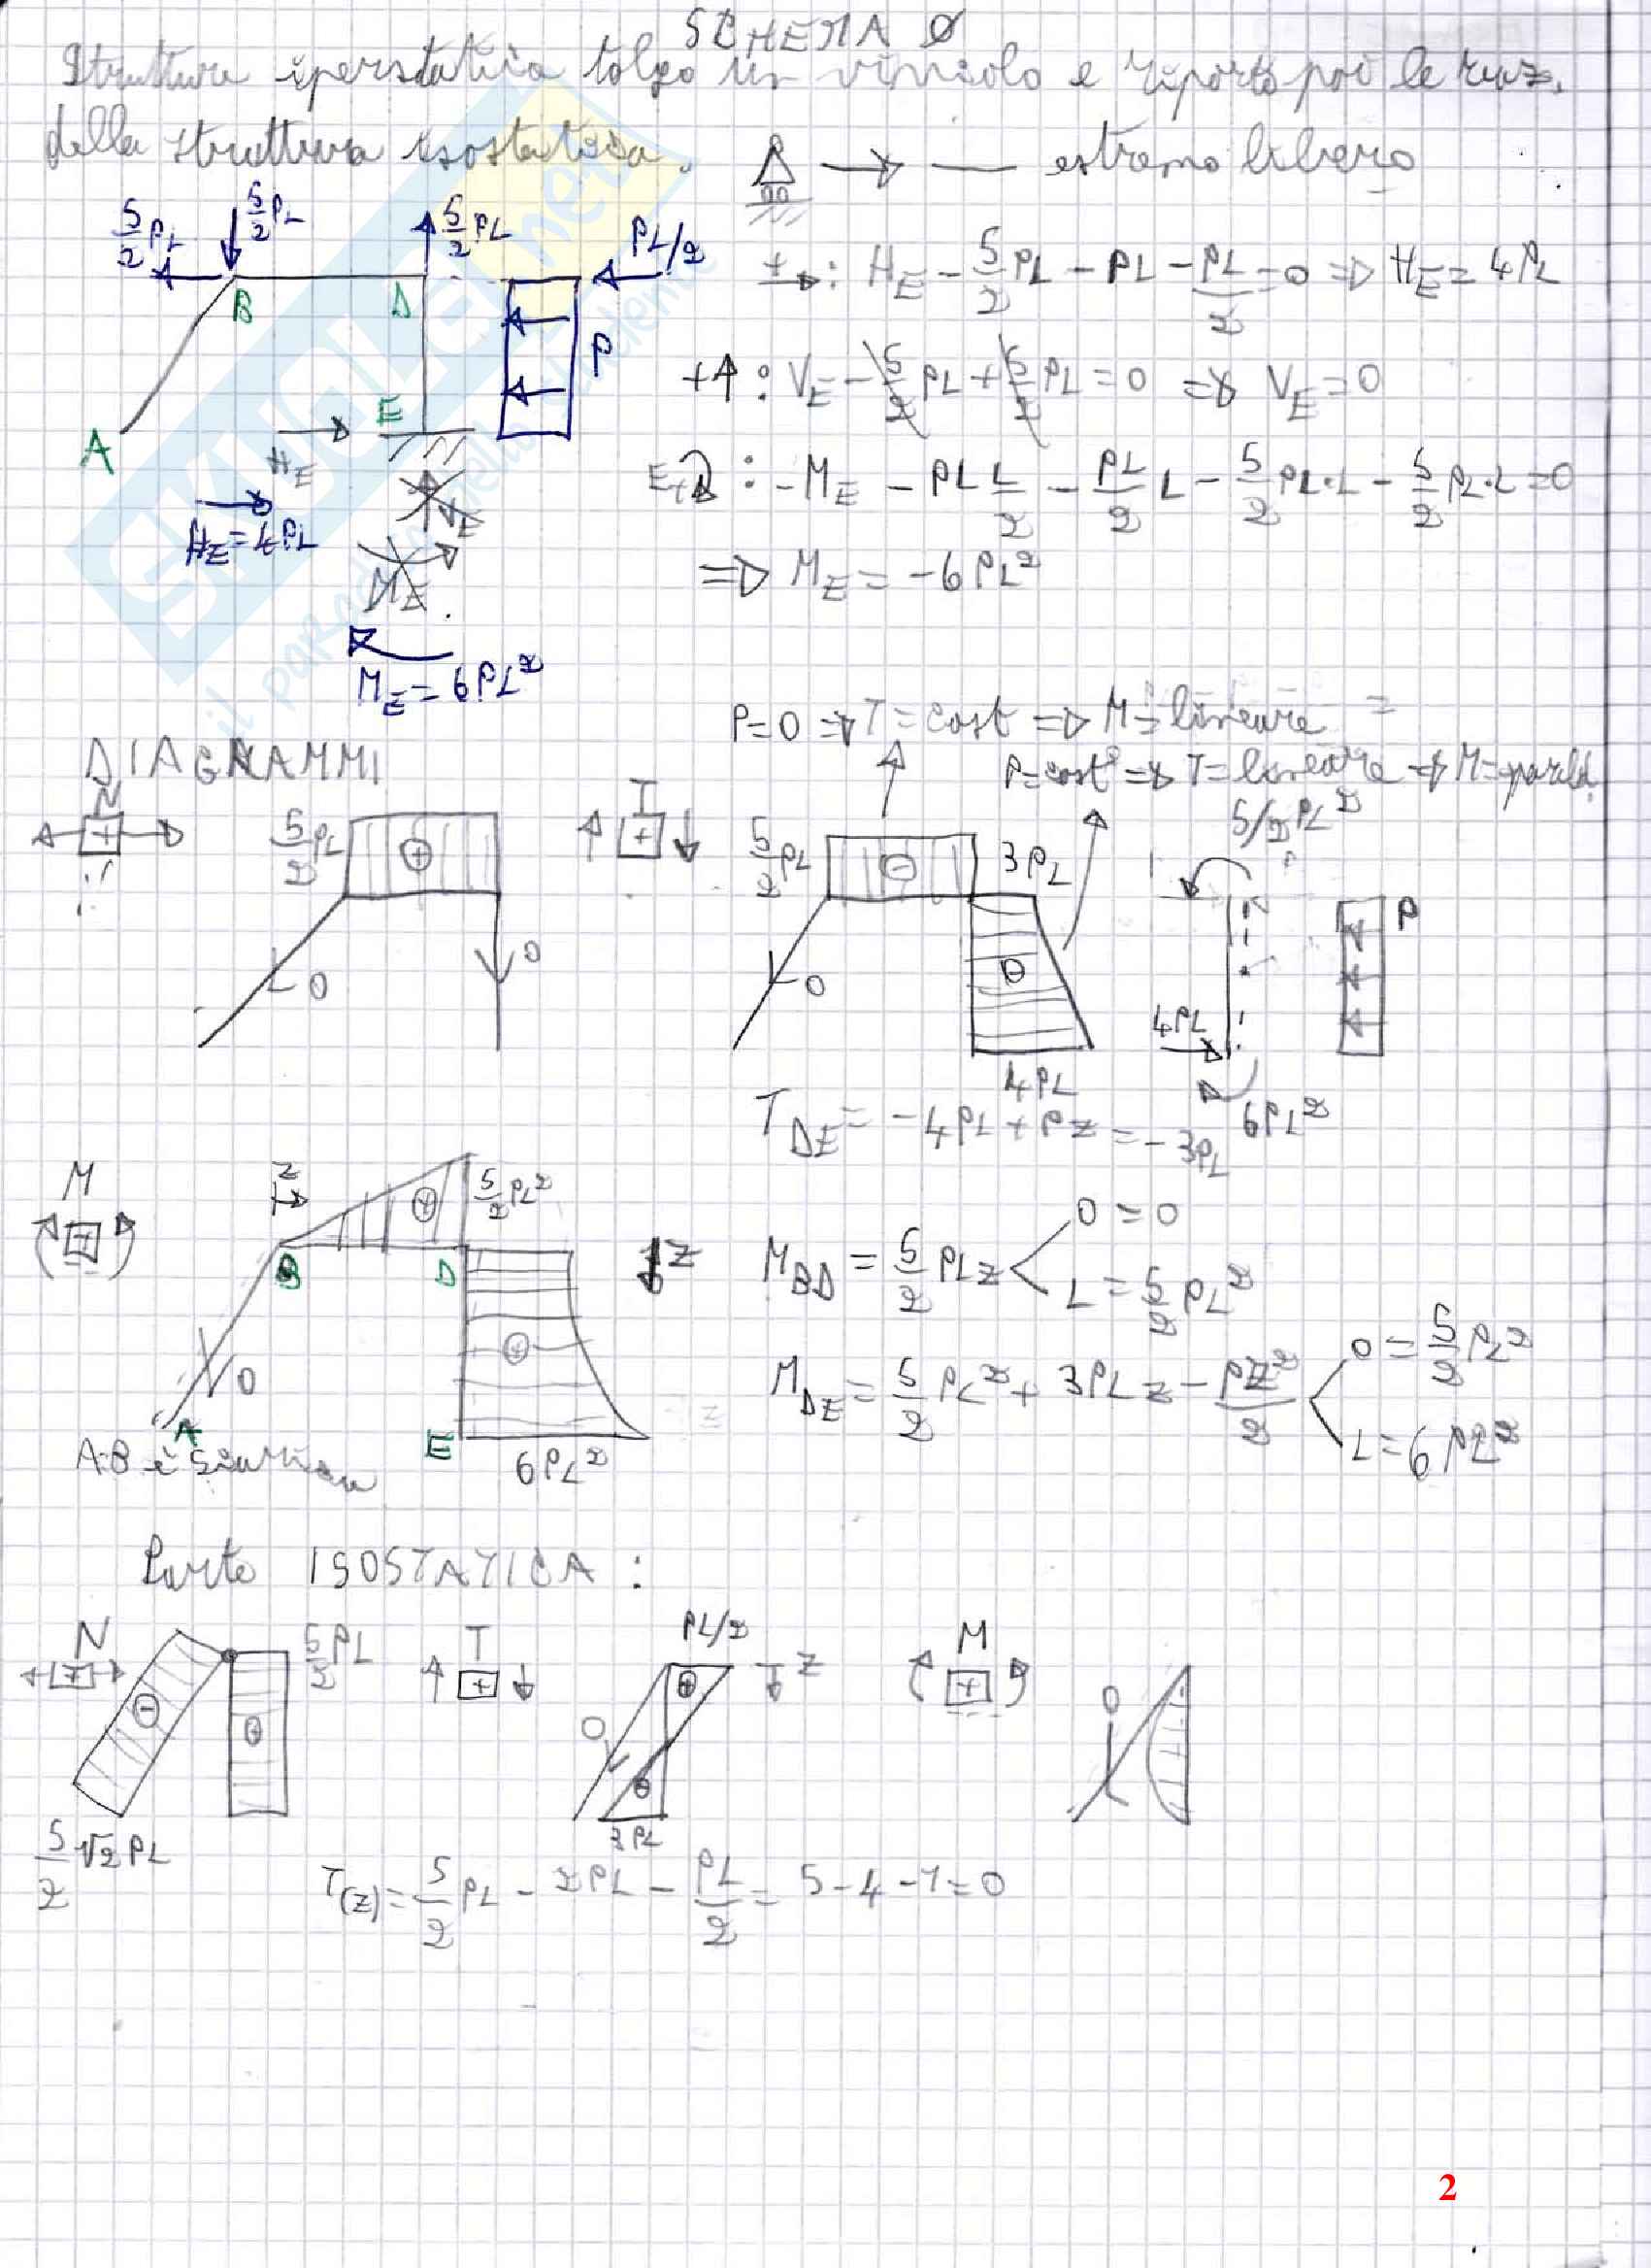 SCHEMA Ø
Struttura iperstatica tolgo un vincolo e riporto poi le reaz.
della struttura isostatica. → — estremo libero
5/2 PL 5/2 PL 5/2 PL PL/2
B D P
A E
H_E
H_E = 4PL
V_E
M_E
M_E = 6PL²
+→: H_E - 5/2 PL - PL - PL/2 = 0 ⇒ H_E = 4PL
+↑: V_E - 5/2 PL + 5/2 PL = 0 ⇒ V_E = 0
E+: -M_E - PL L/2 - PL/2 L - 5/2 PL·L - 5/2 PL·L = 0
⇒ M_E = -6PL²
P=0 ⇒ T=cost ⇒ M=lineare
P=cost ⇒ T=lineare ⇒ M=parab.
DIAGRAMMI
N + 5/2 PL + 0 0
T + 5/2 PL - 3PL 0 4PL
5/2 PL² P 4PL 6PL²
T_DE = -4PL + Pz = -3PL
M + z 5/2 PL² + B D z
0 + A E 6PL²
A-B è scarica
M_BD = 5/2 PLz < 0 = 0
L = 5/2 PL²
M_DE = 5/2 PL² + 3PLz - Pz²/2 < 0 = 5/2 PL²
L = 6PL²
Parte ISOSTATICA:
N + 5/2 PL - 5/2 √2 PL
T + PL/2 + z 0
M + 0
T(z) = 5/2 PL - 2PL - PL/2 = 5-4-1=0
2
SKUOLA.net